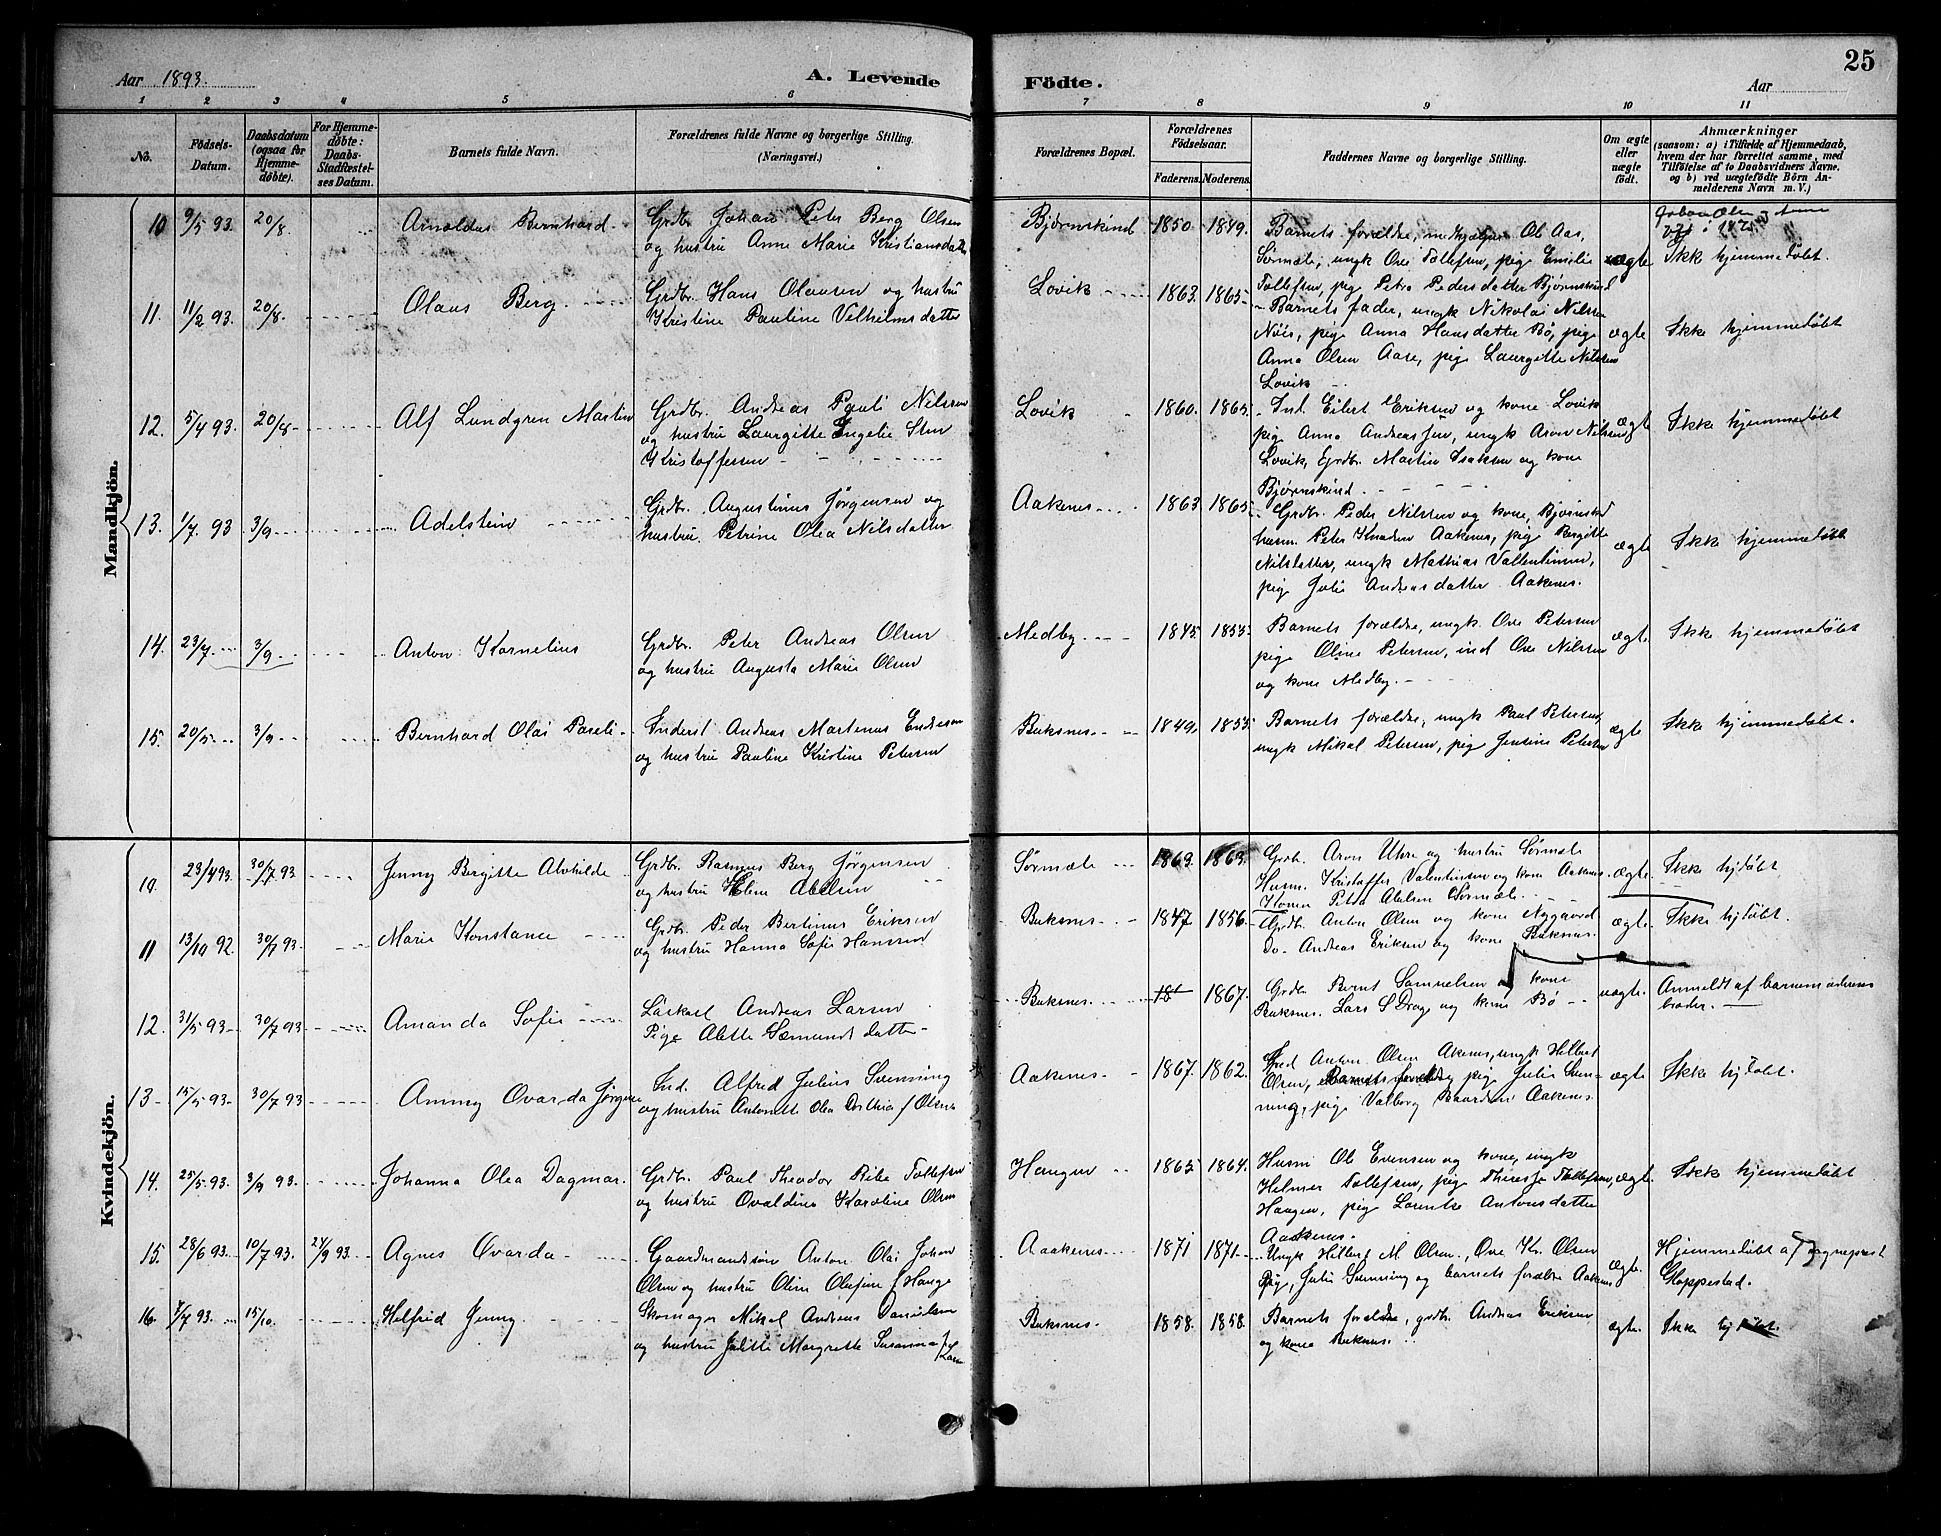 25
Aar 1893.
A. Levende
Födte.
Aar
1 2 3 4 5 6 7 8 9 10 11
No.
Födsels-Datum.
Daabsdatum (ogsaa for Hjemmedöbte).
For Hjemmedöbte: Daabs-Stadfæstelses Datum.
Barnets fulde Navn.
Forældrenes fulde Navne og borgerlige Stilling.
(Næringsvei.)
Forældrenes Bopæl.
Forældrenes Födselsaar.
Faderens. Moderens.
Faddernes Navne og borgerlige Stilling.
Om ægte eller uægte födt.
Anmærkninger
(saasom: a) i Tilfælde af Hjemmedaab, hvem der har forrettet samme, med Tilföielse af to Daabsvidners Navne, og b) ved uægtefödte Börn Anmelderens Navn m. V.)
Mandkjön.
10 9/5 93. 20/8. Arnoldus Bernhard. Grdbr. Johan Peter Berg Olsen
og hustru Anne Marie Kristiansdatter
Bjørnskind 1850 1849. Barnets forældre, medhjælper Ole Aas,
Sørmæle, ungk Ove Tollefsen, pige Emelie
Tollefsen, pige Petra Pedersdatter Bjørnskind
ægte Ikke hjemmedøbt.
11. 11/2 93. 20/8. Olaus Berg. Grdbr. Hans Olausen og hustru
Kristine Pauline Vilhelmsdatter
Lovik 1863. 1865 Barnets fader, ungk Nikolai Nilsen
Nöis, pige Anna Hansdatter Bø, pige
Anna Olsen Aase, pige Laurgitte Nilsen
Lovik
ægte Ikke hjemmedöbt
12. 5/4 93. 20/8 Alf Lundgren Martin Grdbr. Andreas Pauli Nilsen
og hustru Laurgitte Ingelie Sten
Kristoffersen
Lovik 1860. 1865. Ind. Eilert Eriksen og kone Lovik
pige Anna Andreassen, ungk Aron Nilsen
Lovik, Grdbr. Martin Isaksen og kone
Bjørnskind.
ægte Ikke hjemmedøbt
13. 1/7. 93 3/9 Adelstein Grdbr. Augustinus Jørgensen og
hustru. Petrine Olea Nilsdatter
Aakenes 1863 1865 Grdbr. Peder Nilsen og kone, Bjørnskind
husm. Peter Knudsen Aakenes, pige Bergitte
Nilsdatter, ungk Mathias Vallentinsen,
pige Julie Andreasdatter Aakenes.
ægte Ikke hjemmedøbt
14. 23/7 3/9 Anton Kornelius Grdbr. Peter Andreas Olsen
og hustru Augusta Marie Olsen
Medby 1845 1855 Barnets forældre, ungk. Ove Petersen
pige Oline Petersen, ind Ove Nilsen
og kone Medby.
ægte Ikke hjemmedøbt
15. 20/5 3/9 Bernhard Olai Pareli Inderst Andreas Martenus Endresen
og hustru Pauline Kristine Petersen
Buksnes 1849. 1855 Barnets forældre, ungk Paul Petersen,
ungk Mikal Petersen, pige Jensine Petersen
ægte Ikke hjemmedøbt.
Kvindekjön.
10 23/4 93. 30/7 93 Jenny Birgitte Alvhilde Grdbr. Rasmus Berg Jørgensen
og hustru Heline Abelsen
Sørmæle 1869. 1863. Grdb. Aron Uhre og hustru Sørmæle
Husm. Kristoffer Valentinsen og kone Aakenes
Konen Petra Abelsen Sørmæle
ægte Ikke hjdøbt
11 13/10 92. 30/7 93. Marie Konstance Grdbr. Peder Bertinus Eriksen
og hustru Hanna Sofie Hansen
Buksnes 1847 1856 Grdb. Anton Olsen og kone Nygaard
Do. Andreas Eriksen og kone Buksnes.
ægte. Ikke hjdøbt.
12. 31/5 93 30/7 93 Amanda Sofie Löskarl Andreas Larsen
Pige Alette Sæmundsdatter
Buksnes 18 1867. Grdb. Bernt Samuelsen kone
Buksnes. Lars S Drage og kone Bø
uægte. Anmeldt af barnemoderens
broder.
13 15/5 93 30/7 93 Ammy Ovarda Jørgine Ind. Alfred Julius Svenning
og hustru Antonette Olea Dorthia f Olsen
Aakenes 1867. 1862. Ind Anton Olsen Akenes, ungk Hilbert
Olsen, pige Julie Sven-
ning, pige Valborg Baardsen Aakenes.
ægte Ikke hjdøbt.
14. 25/5 93. 3/9 93. Johanna Olea Dagmar. Grdb. Paul Theodor Ribe Tollefsen
og hustru Ovaldine Karoline Olsen
Haugen 1865 1864. Husm Ole Evensen og kone, ungk
Helmer Tollefsen, pige Therese Tollefsen,
Haugen, pige Lorentse Antonsdatter
Aakenes.
ægte. Ikke hjemmedöbt
15. 28/6 93. 10/7 93. 24/9 93. Agnes Ovarda Gaardmandssön Anton Olai Johan
Olsen og hustru Oline Olufine f Hauge
Aakenes 1871 1871 Ungk Hilbert M Olsen, Ove Kr. Olsen
Pige, Julie Svenning og barnets forældre Aakenes
ægte. Hjemmedøbt af sogneprest
Gloppestad.
16. 7/7 93. 15/10. Helfrid Jenny. Skomager Mikal Andreas Danielsen
og hustru Jolette Margrethe Susanna f Larsen
Buksnes. 1858. 1858. Barnets forældre, grdbr. Andreas Eriksen
og kone Buksnes.
ægte. Ikke hjdøbt.